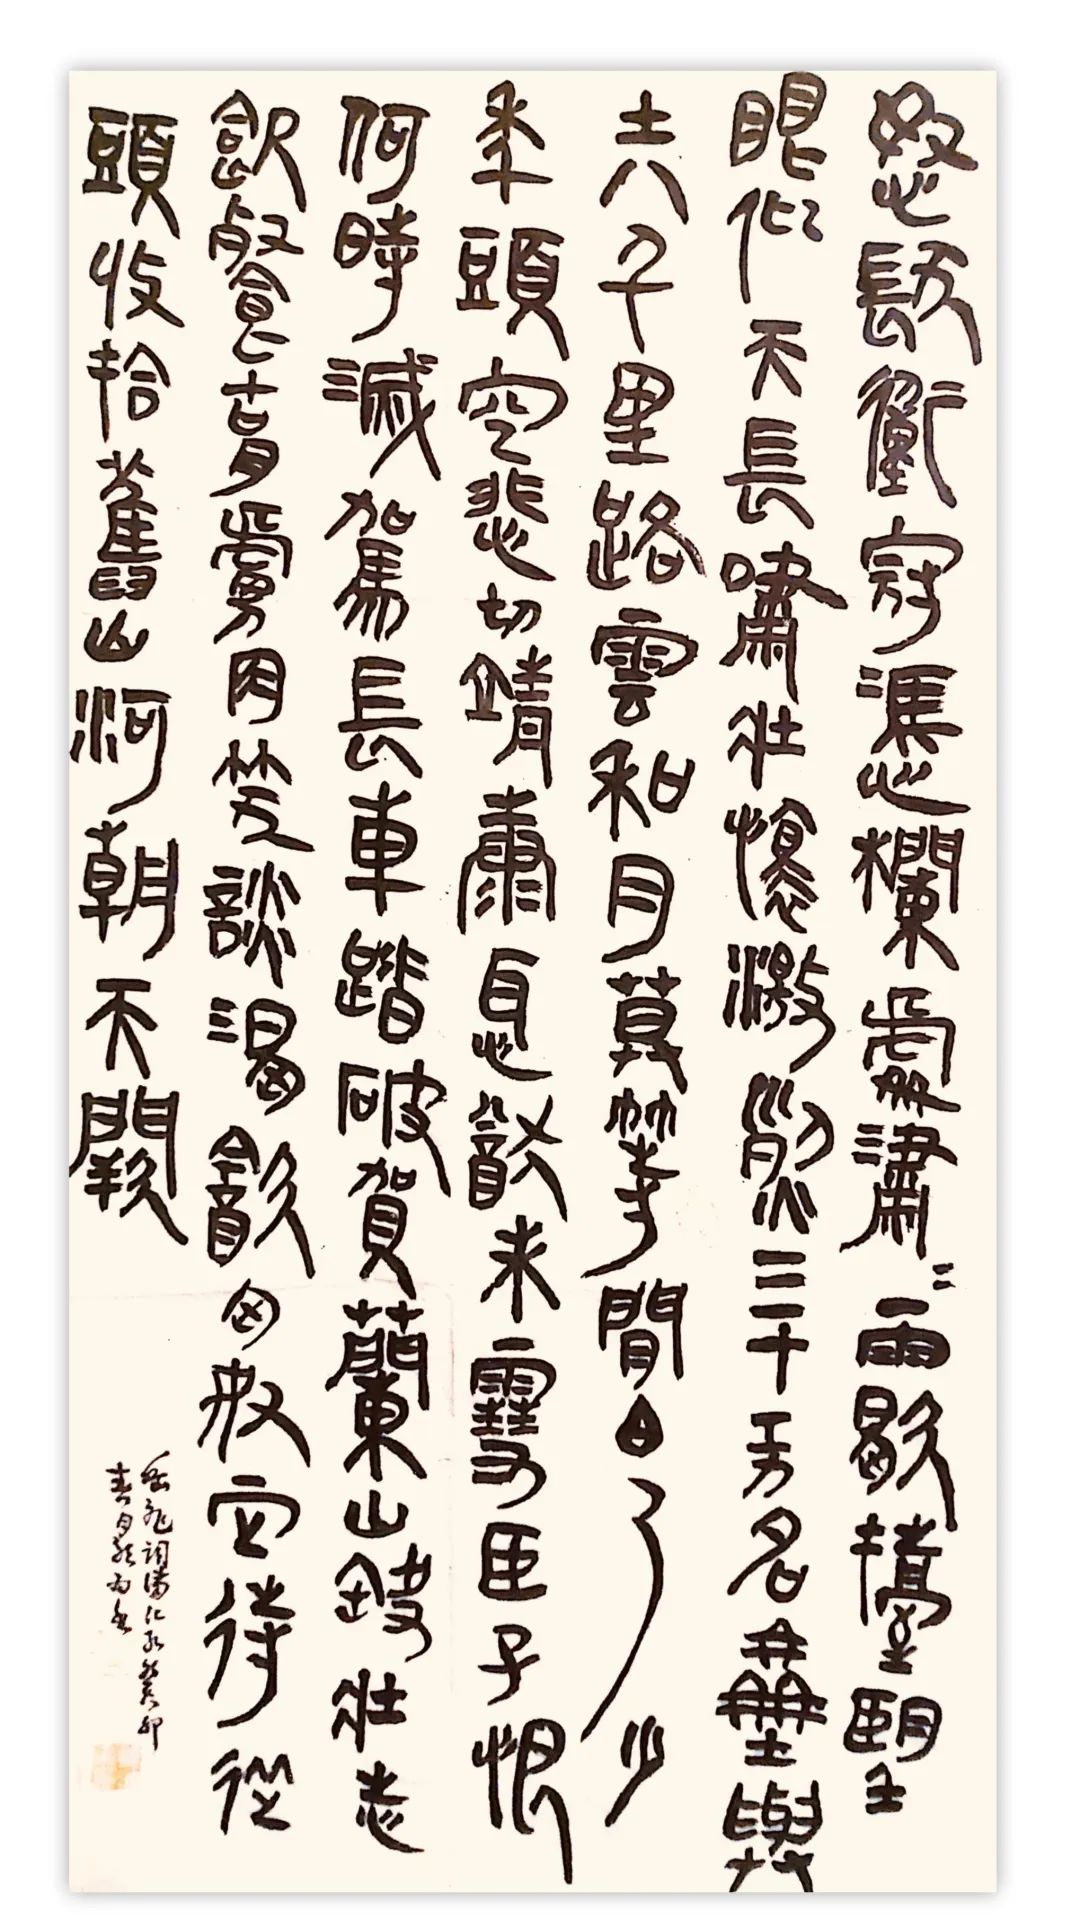 怒髮衝冠憑欄處瀟〻雨歇擡望
眼仰天長嘯壯懷激烈三十功名塵與
土八千里路雲和月莫等閒白了少
年頭空悲切靖康恥猶未雪臣子恨
何時滅駕長車踏破賀蘭山缺壯志
飢餐胡虜肉笑談渴飲匈奴血待從
頭收拾舊山河朝天闕
岳飛詞滿江紅癸卯
春月